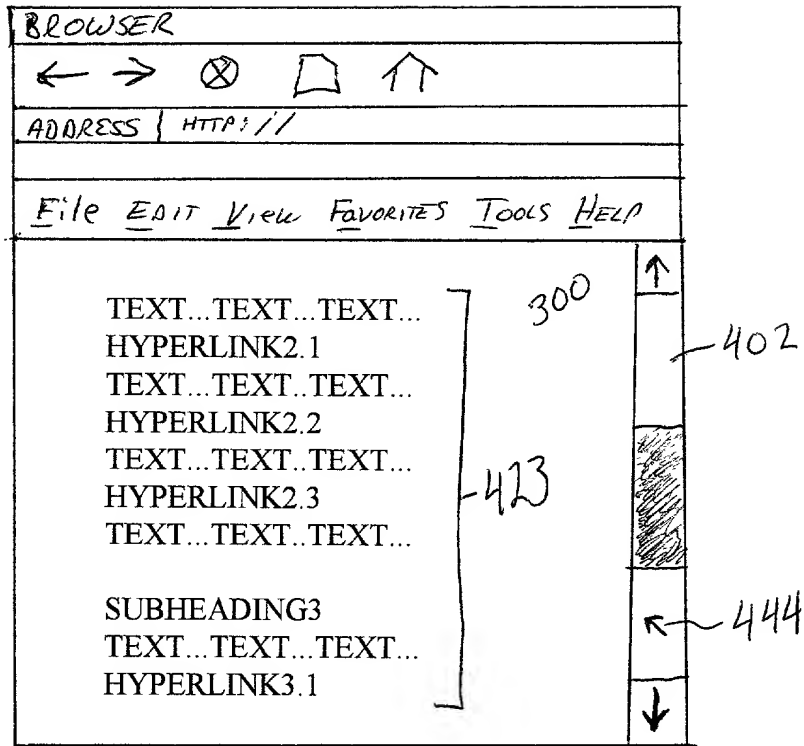 BROWSER
ADDRESS | HTTP://
File EDIT View FAVORITES Tools HELP
TEXT...TEXT...TEXT...
300
HYPERLINK2.1
402
TEXT...TEXT..TEXT...
HYPERLINK2.2
TEXT...TEXT..TEXT...
423
HYPERLINK2.3
TEXT...TEXT..TEXT...
SUBHEADING3
444
TEXT...TEXT...TEXT...
HYPERLINK3.1